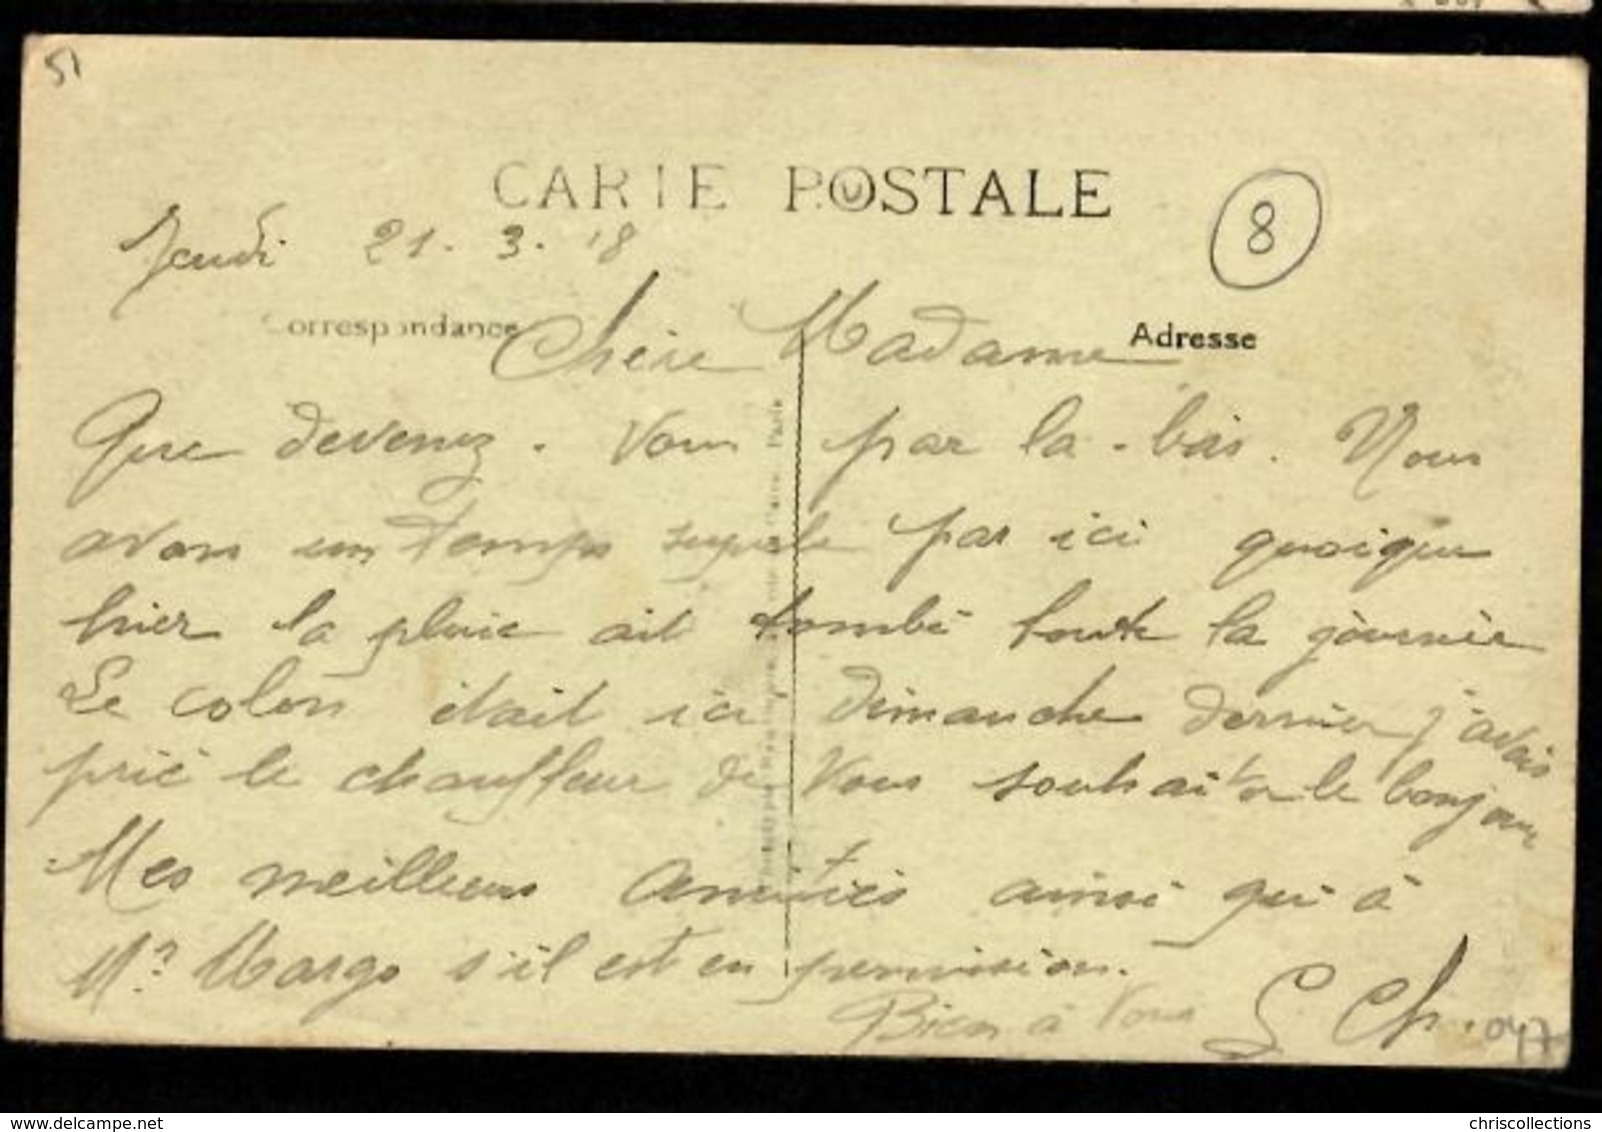 51
CARTE POSTALE
8
Jeudi 21.3.18
Correspondance
Adresse
Chère Madame
Que devenez-vous par la-bas. Nous
avons un temps superbe par ici quoique
hier la pluie ait tombé toute la journée
Le colon était ici dimanche dernier j'avais
prié le chauffeur de vous souhaiter le bonjour
Mes meilleurs amitiés ainsi qui à
Mr Margo s'il est en permission.
Bien à vous
Ch.
047
delcampe.net
chriscollections